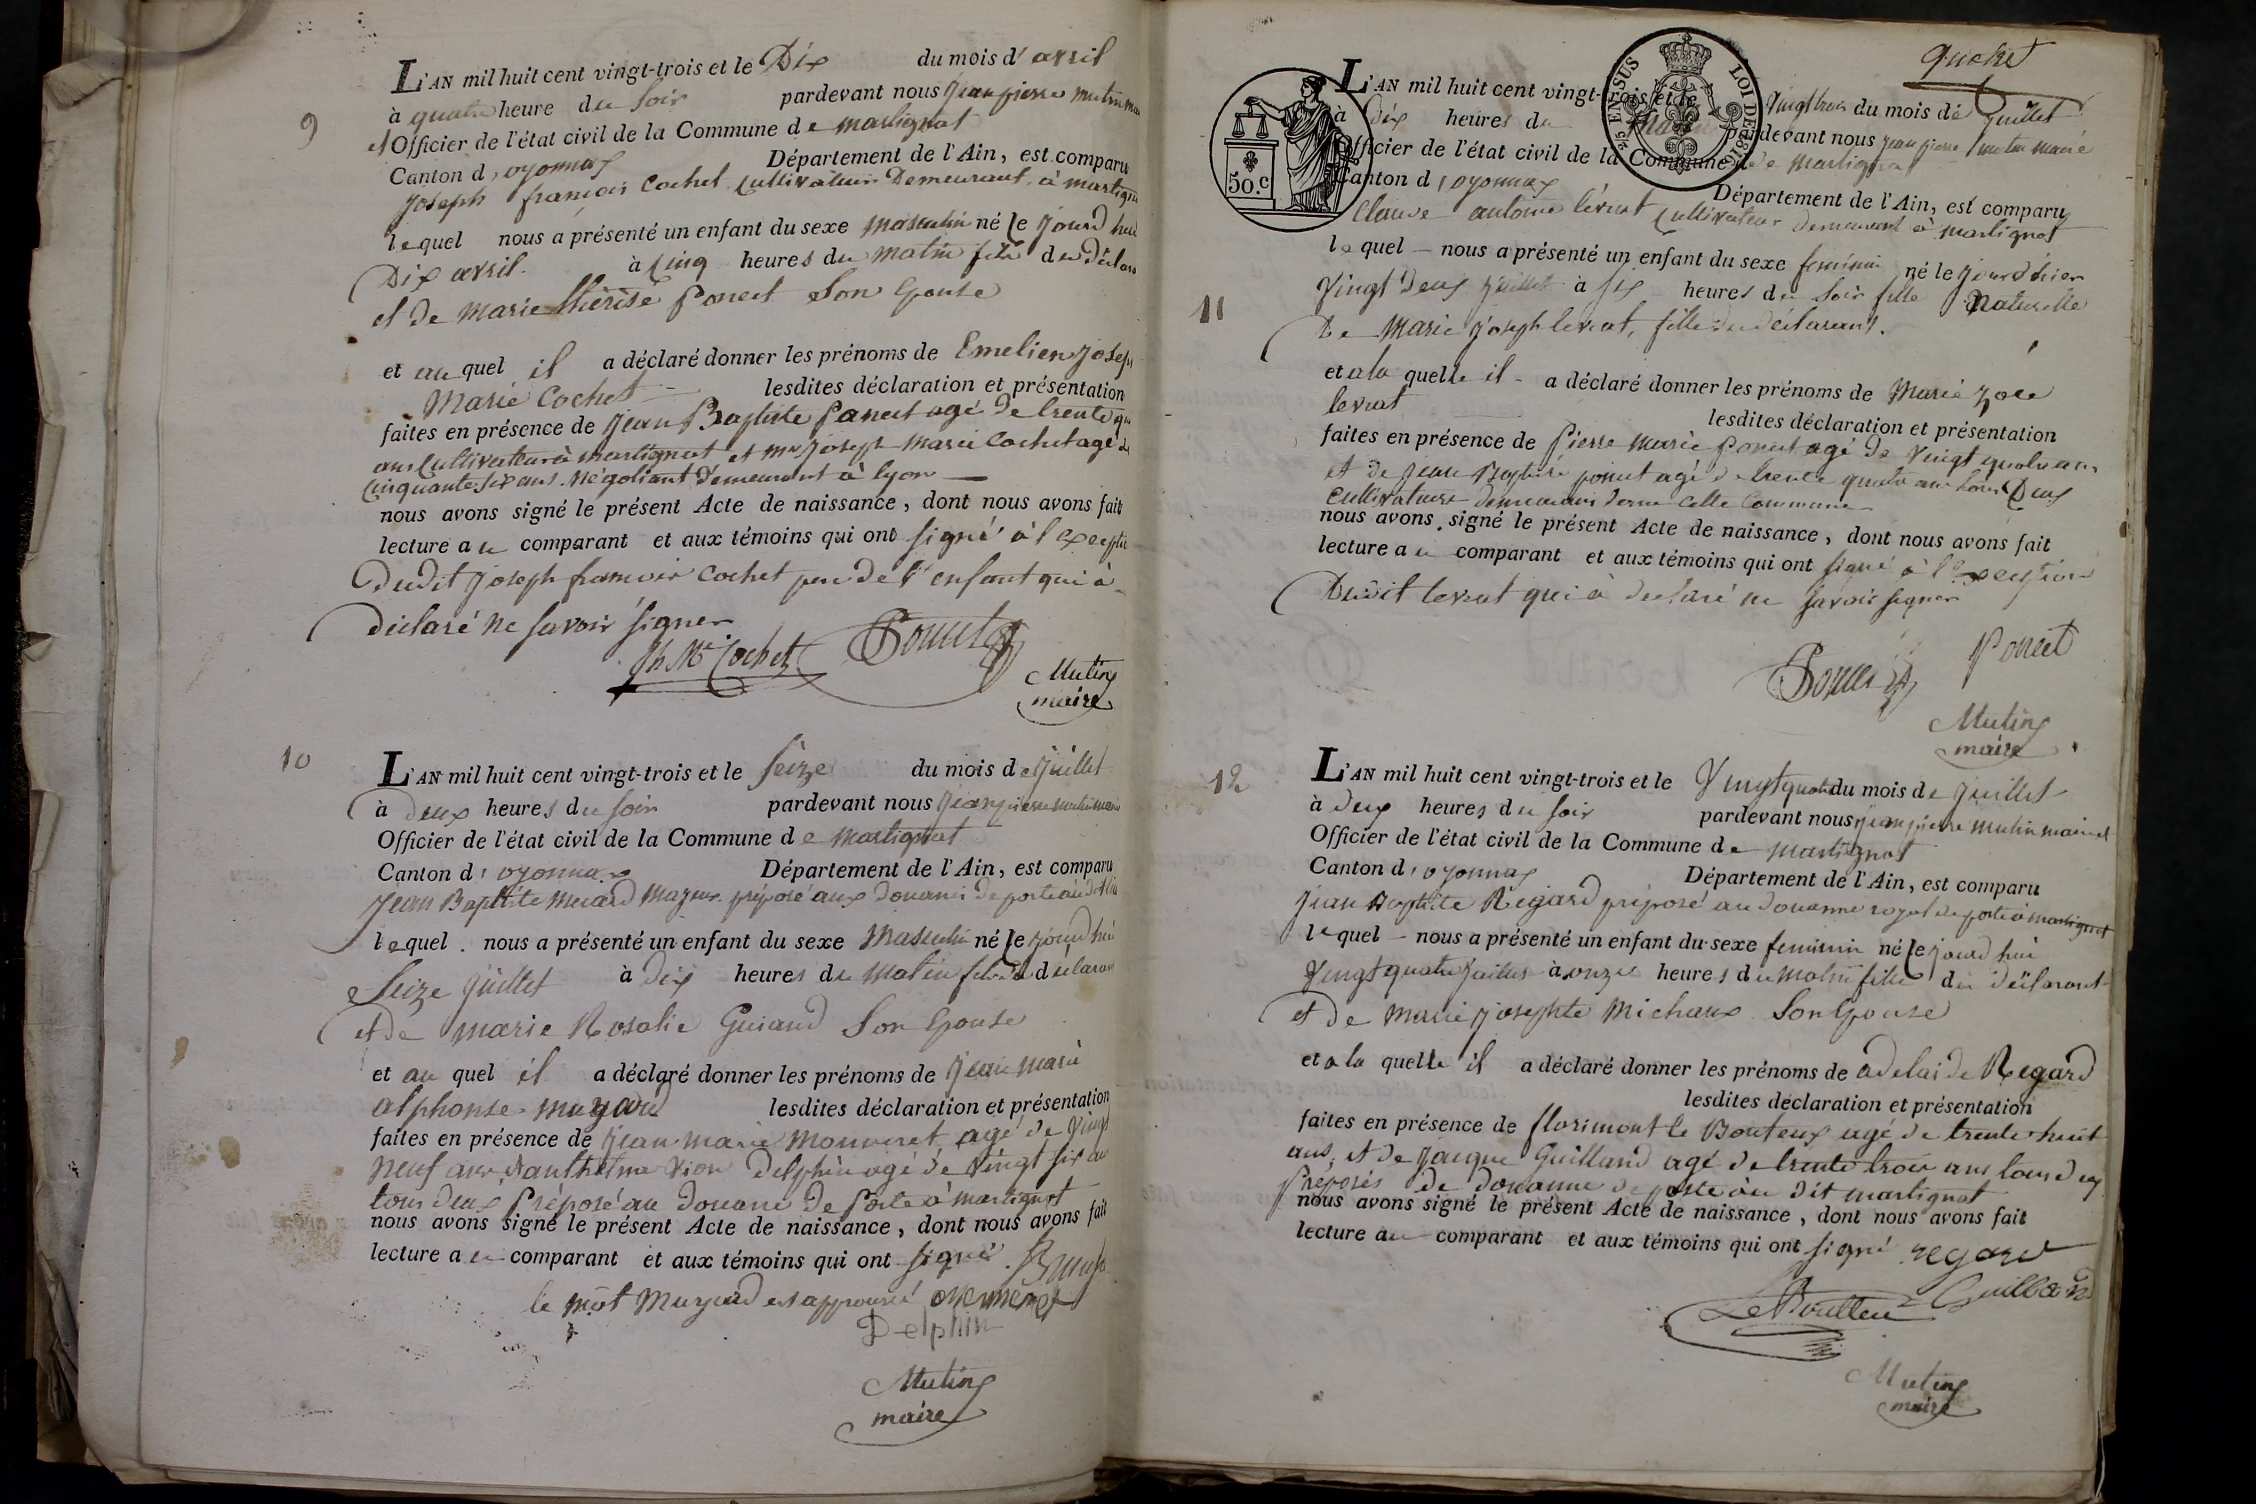 9
L'AN mil huit cent vingt-trois et le Dix du mois d'avril
à quatre heure du Soir pardevant nous Jean pierre mutin
et Officier de l'état civil de la Commune de martignat
Canton d'oyonnax Département de l'Ain, est comparu
Joseph françois Cochet Cultivateur Demeurant à
lequel nous a présenté un enfant du sexe masculin né le jourd'hui
Dix avril à Cinq heures du matin fils du
et de marie thérèse Poncet Son Epouse
et au quel il a déclaré donner les prénoms de Emelien Joseph
Marie Cochet lesdites déclaration et présentation
faites en présence de Jean Baptiste Poncet agé de trente
ans Cultivateur à martignat et mr Joseph Marie Cochet agé de
Cinquante Six ans Négotiant demeurant à lyon
nous avons signé le présent Acte de naissance, dont nous avons fait
lecture au comparant et aux témoins qui ont signé à l'exceptio
Dudit Joseph francois Cochet pere de l'enfant qui à
déclaré ne savoir signer
Jh Me Cochet Poncet
Mutin
maire
10
L'AN mil huit cent vingt-trois et le Seize du mois de Juillet
à deux heures du soir pardevant nous Jean pierre mutin maire
Officier de l'état civil de la Commune de martignat
Canton d'oyonnax Département de l'Ain, est comparu
Jean Baptiste préposé aux Douanes de poste
lequel nous a présenté un enfant du sexe Masculin né le jourd'hui
Seize Juillet à dix heures du Matin fils du
et de marie Rosalie Guiand Son Epouse
et au quel il a déclaré donner les prénoms de Jean marie
alphonse lesdites déclaration et présentation
faites en présence de Jean marie agé de vingt
neuf ans, et anthelme Delphin agé de vingt six ans
tous deux Préposé au Douane de Poste à martignat
nous avons signé le présent Acte de naissance, dont nous avons fait
lecture au comparant et aux témoins qui ont signé.
le mot est approuvé
Delphin
Mutin
maire
quchet
50.c
25 EN SUS LOI DE 1816
11
L'AN mil huit cent vingt-trois et le vingt trois du mois de Juillet
à Dix heures du Matin pardevant nous jean pierre mutin maire
Officier de l'état civil de la Commune de martignat
Canton d'oyonnax Département de l'Ain, est comparu
Claude antoine levrat Cultivateur demeurant à martignat
lequel nous a présenté un enfant du sexe feminin né le jourd'hier
Vingt Deux Juillet à six heures du Soir fille Naturelle
De Marie Joseph levrat, fille du déclarant.
et a la quelle il a déclaré donner les prénoms de Marie
levrat lesdites déclaration et présentation
faites en présence de Pierre Marie Poncet agé de Vingt quatre ans
et de Jean Baptiste poncet agé de trente quatre ans tous Deux
Cultivateurs demeurans dans Cette Commune
nous avons signé le présent Acte de naissance, dont nous avons fait
lecture au comparant et aux témoins qui ont signé à l'exception
Dudit levrat qui à declaré ne savoir signer
Poncet Poncet
Mutin
maire
12
L'AN mil huit cent vingt-trois et le Vingt quatre du mois de Juillet
à deux heures du soir pardevant nous Jean pierre mutin maire et
Officier de l'état civil de la Commune de martignat
Canton d'oyonnax Département de l'Ain, est comparu
Jean Baptiste Régard préposé au douanne royal de poste à martignat
lequel nous a présenté un enfant du sexe feminin né le jourd'hui
Vingt quatre Juillet à onze heures du matin fille du déclarant
et de Marie Josephte Michaux Son Epouse
et a la quelle il a déclaré donner les prénoms de adelaide Regard
lesdites déclaration et présentation
faites en présence de florimont le Bouteux agé de trente huit
ans, et de Jacque Guilland agé de trente trois ans tous deux
Préposés de douanne de poste au dit martignat
nous avons signé le présent Acte de naissance, dont nous avons fait
lecture au comparant et aux témoins qui ont signé regard
Guilland
Mutin
maire